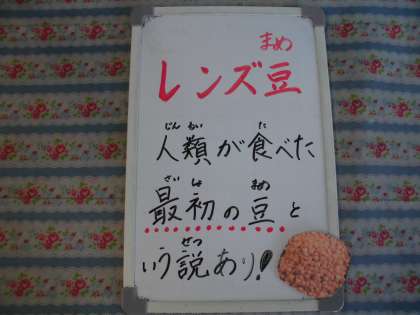 まめ
レンズ豆
じん るい た
人類が食べた
さい しょ まめ
最初の豆と
せつ
いう説あり!